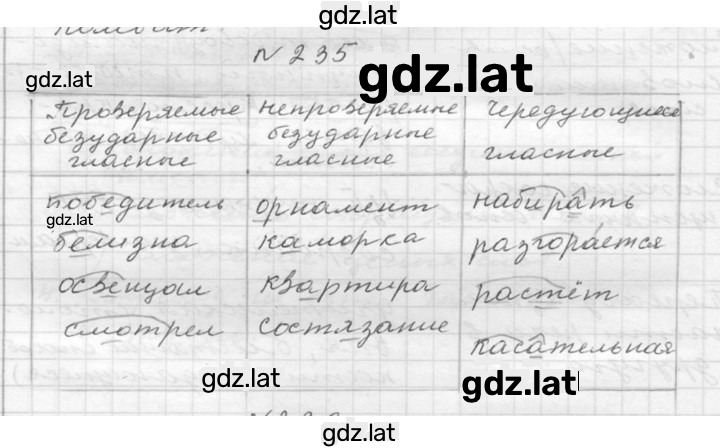 gdz.lat
N 235
gdz.lat
gdz.lat
Проверяемые безударные гласные
непроверяемые безударные гласные
Чередующиеся гласные
победитель орнамент набирать
gdz.lat
белизна каморка разгорается
освещал квартира растёт
смотрел состязание касательная
gdz.lat
gdz.lat
gdz.lat